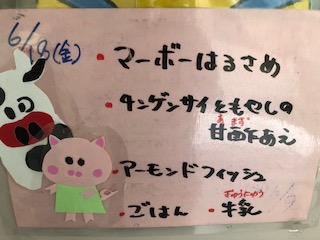 6/18(金)
・マーボーはるさめ
・タンゲンサイともやしの
あまず
甘酢あえ
・アーモンドフィッシュ
ぎゅうにゅう
・ごはん ・牛乳